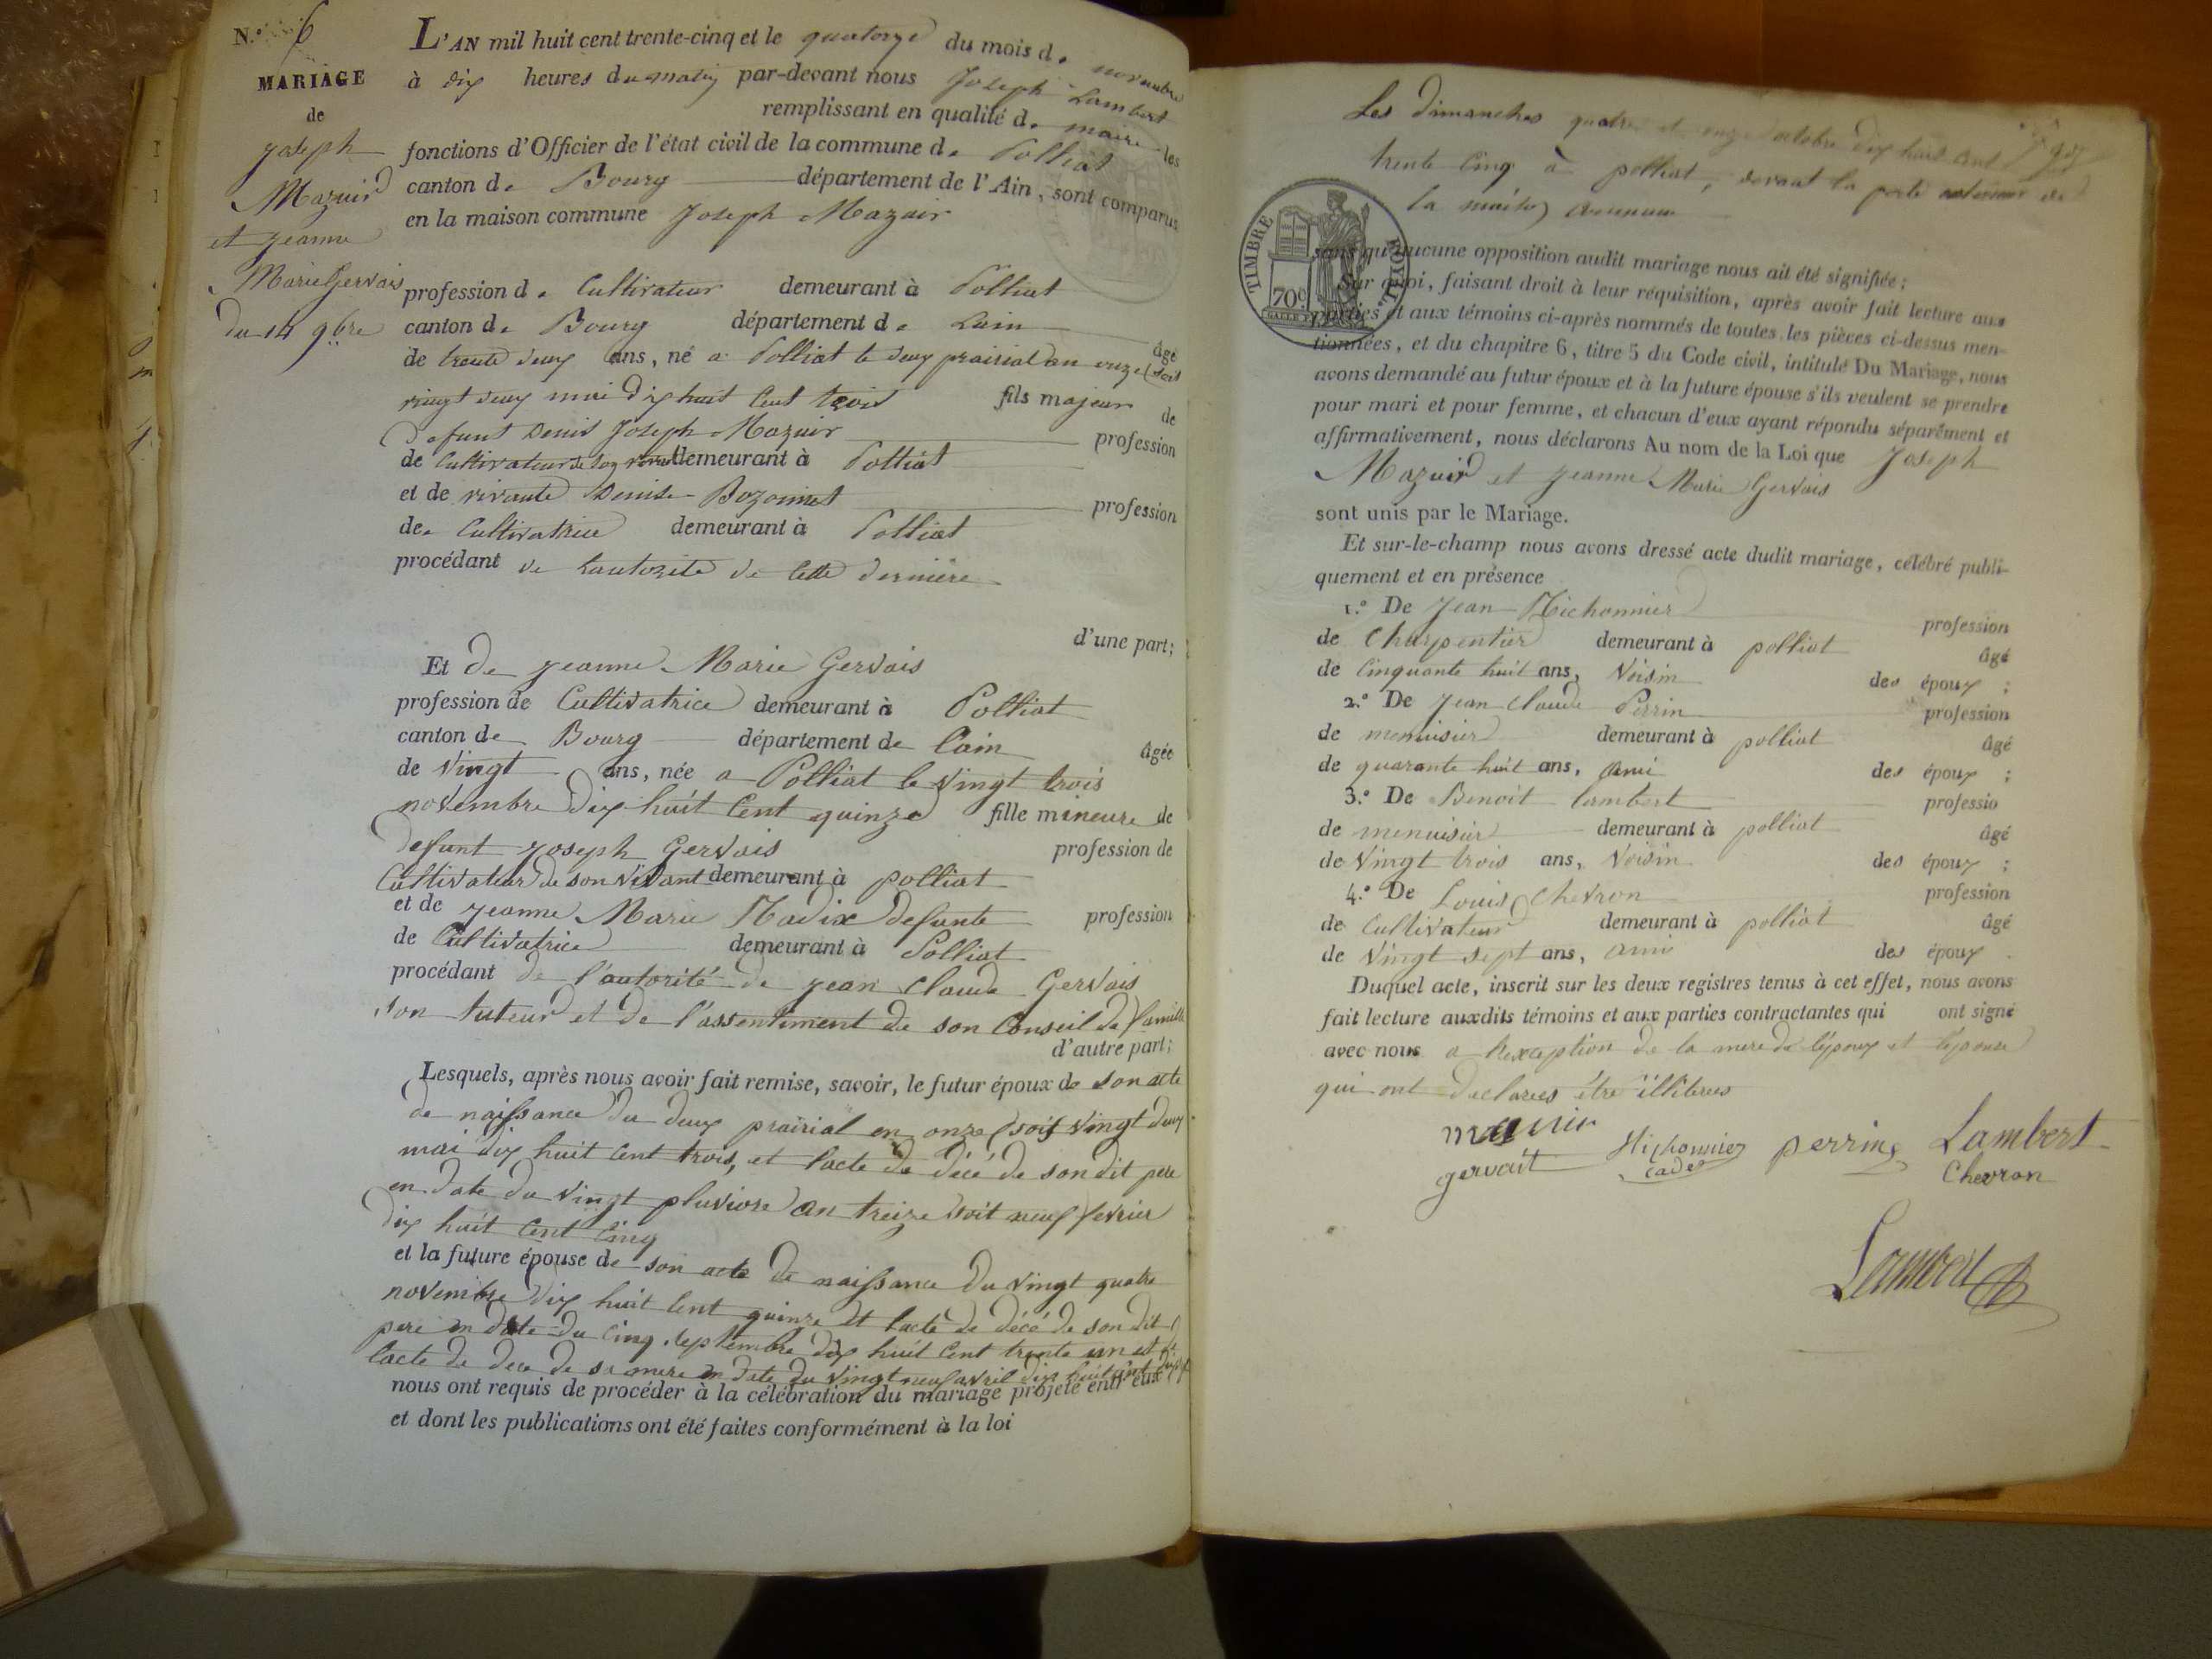 N.º 6
MARIAGE
de
Joseph
Mazuir
et jeanne
Marie Gervais
du 14 9bre
L'AN mil huit cent trente-cinq et le quatorze du mois de novembre
à dix heures du matin par-devant nous Joseph Lambert
remplissant en qualité de maire les
fonctions d'Officier de l'état civil de la commune de Polliat
canton de Bourg département de l'Ain, sont comparus
en la maison commune Joseph Mazuir
profession de Cultivateur demeurant à Polliat
canton de Bourg département de Lain âgé
de trente deux ans, né a Polliat le deux prairial an onze (soit
vingt deux mai dix huit Cent trois fils majeur de
defunt Denis Joseph Mazuir profession
de Cultivateur de son vivant demeurant à Polliat
et de vivante Denise Bozonnet profession
de Cultivatrice demeurant à Polliat
procédant de Lautorité de Cette dernière
d'une part;
Et De jeanne Marie Gervais
profession de Cultivatrice demeurant à Polliat
canton de Bourg département de Lain âgée
de Vingt ans, née a Polliat le Vingt trois
novembre dix huit Cent quinze fille mineure de
defunt joseph Gervais profession de
Cultivateur de son Vivant demeurant à polliat
et de jeanne Marie defunte profession
de Cultivatrice demeurant à Polliat
procédant de l'autorité de jean Claude Gervais
son tuteur et de l'assentiment de son Conseil de famille
d'autre part;
Lesquels, après nous avoir fait remise, savoir, le futur époux de son acte
de naissance du deux prairial en onze (soit Vingt deux
mai dix huit Cent trois, et lacte de décé de son dit pere
en date du Vingt pluviose an treize soit neuf fevrier
dix huit Cent Cinq
et la future épouse de son acte de naissance du vingt quatre
novembre dix huit Cent quinze et lacte de décé de son dit
pere en date du Cinq septembre dix huit Cent trente un et
lacte de dece de sa mere en date du Vingt neuf avril dix huit Cent
nous ont requis de procéder à la célébration du mariage projeté entr'eux
et dont les publications ont été faites conformément à la loi
Les dimanches quatre et onze octobre dix huit Cent
trente Cinq à polliat, devant la porte exterieur de
la maison commune
TIMBRE ROYAL
70c
sans qu'aucune opposition audit mariage nous ait été signifiée;
Sur quoi, faisant droit à leur réquisition, après avoir fait lecture aux
parties et aux témoins ci-après nommés de toutes les pièces ci-dessus men-
tionnées, et du chapitre 6, titre 5 du Code civil, intitulé Du Mariage, nous
avons demandé au futur époux et à la future épouse s'ils veulent se prendre
pour mari et pour femme, et chacun d'eux ayant répondu séparément et
affirmativement, nous déclarons Au nom de la Loi que Joseph
Mazuir et jeanne Marie Gervais
sont unis par le Mariage.
Et sur-le-champ nous avons dressé acte dudit mariage, célébré publi-
quement et en présence
1.º De Jean Michonnier profession
de Charpentier demeurant à polliat âgé
de Cinquante huit ans, Voisin des époux ;
2.º De Jean Claude Perrin profession
de menuisier demeurant à polliat âgé
de quarante huit ans, ami des époux ;
3.º De Benoit Lambert professio
de menuisier demeurant à polliat âgé
de Vingt trois ans, Voisin des époux ;
4.º De Louis Chevron profession
de Cultivateur demeurant à polliat âgé
de Vingt sept ans, ami des époux .
Duquel acte, inscrit sur les deux registres tenus à cet effet, nous avons
fait lecture auxdits témoins et aux parties contractantes qui ont signé
avec nous a lexception de la mere de lépoux et lépouse
qui ont declarees être illiteres
mazuir
gervait Michonnier
cadet
perrin Lambert
Chevron
Lambert